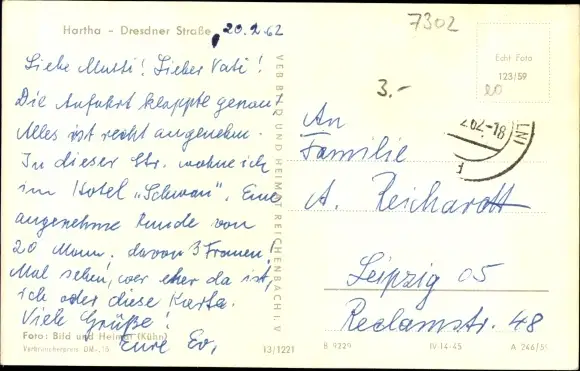 Hartha - Dresdner Straße
20.2.62
7302
Liebe Mutti! Lieber Vati!
Die Anfahrt klappte genau!
Alles ist recht angenehm.
In dieser Str. wohne ich
im Hotel „Schwan". Eine
angenehme Runde von
20 Mann, davon 3 Frauen!
Mal sehen, wer eher da ist,
ich oder diese Karte.
Viele Grüße!
Eure
Foto: Bild und Heimat (Kühn)
Verbraucherpreis DM -,15
13/1221
VEB BILD UND HEIMAT REICHENBACH I. V
3.-
Echt Foto
123/59
An
Familie
A. Reichardt
Leipzig 05
Reclamstr. 48
B 9229
IV-14-45